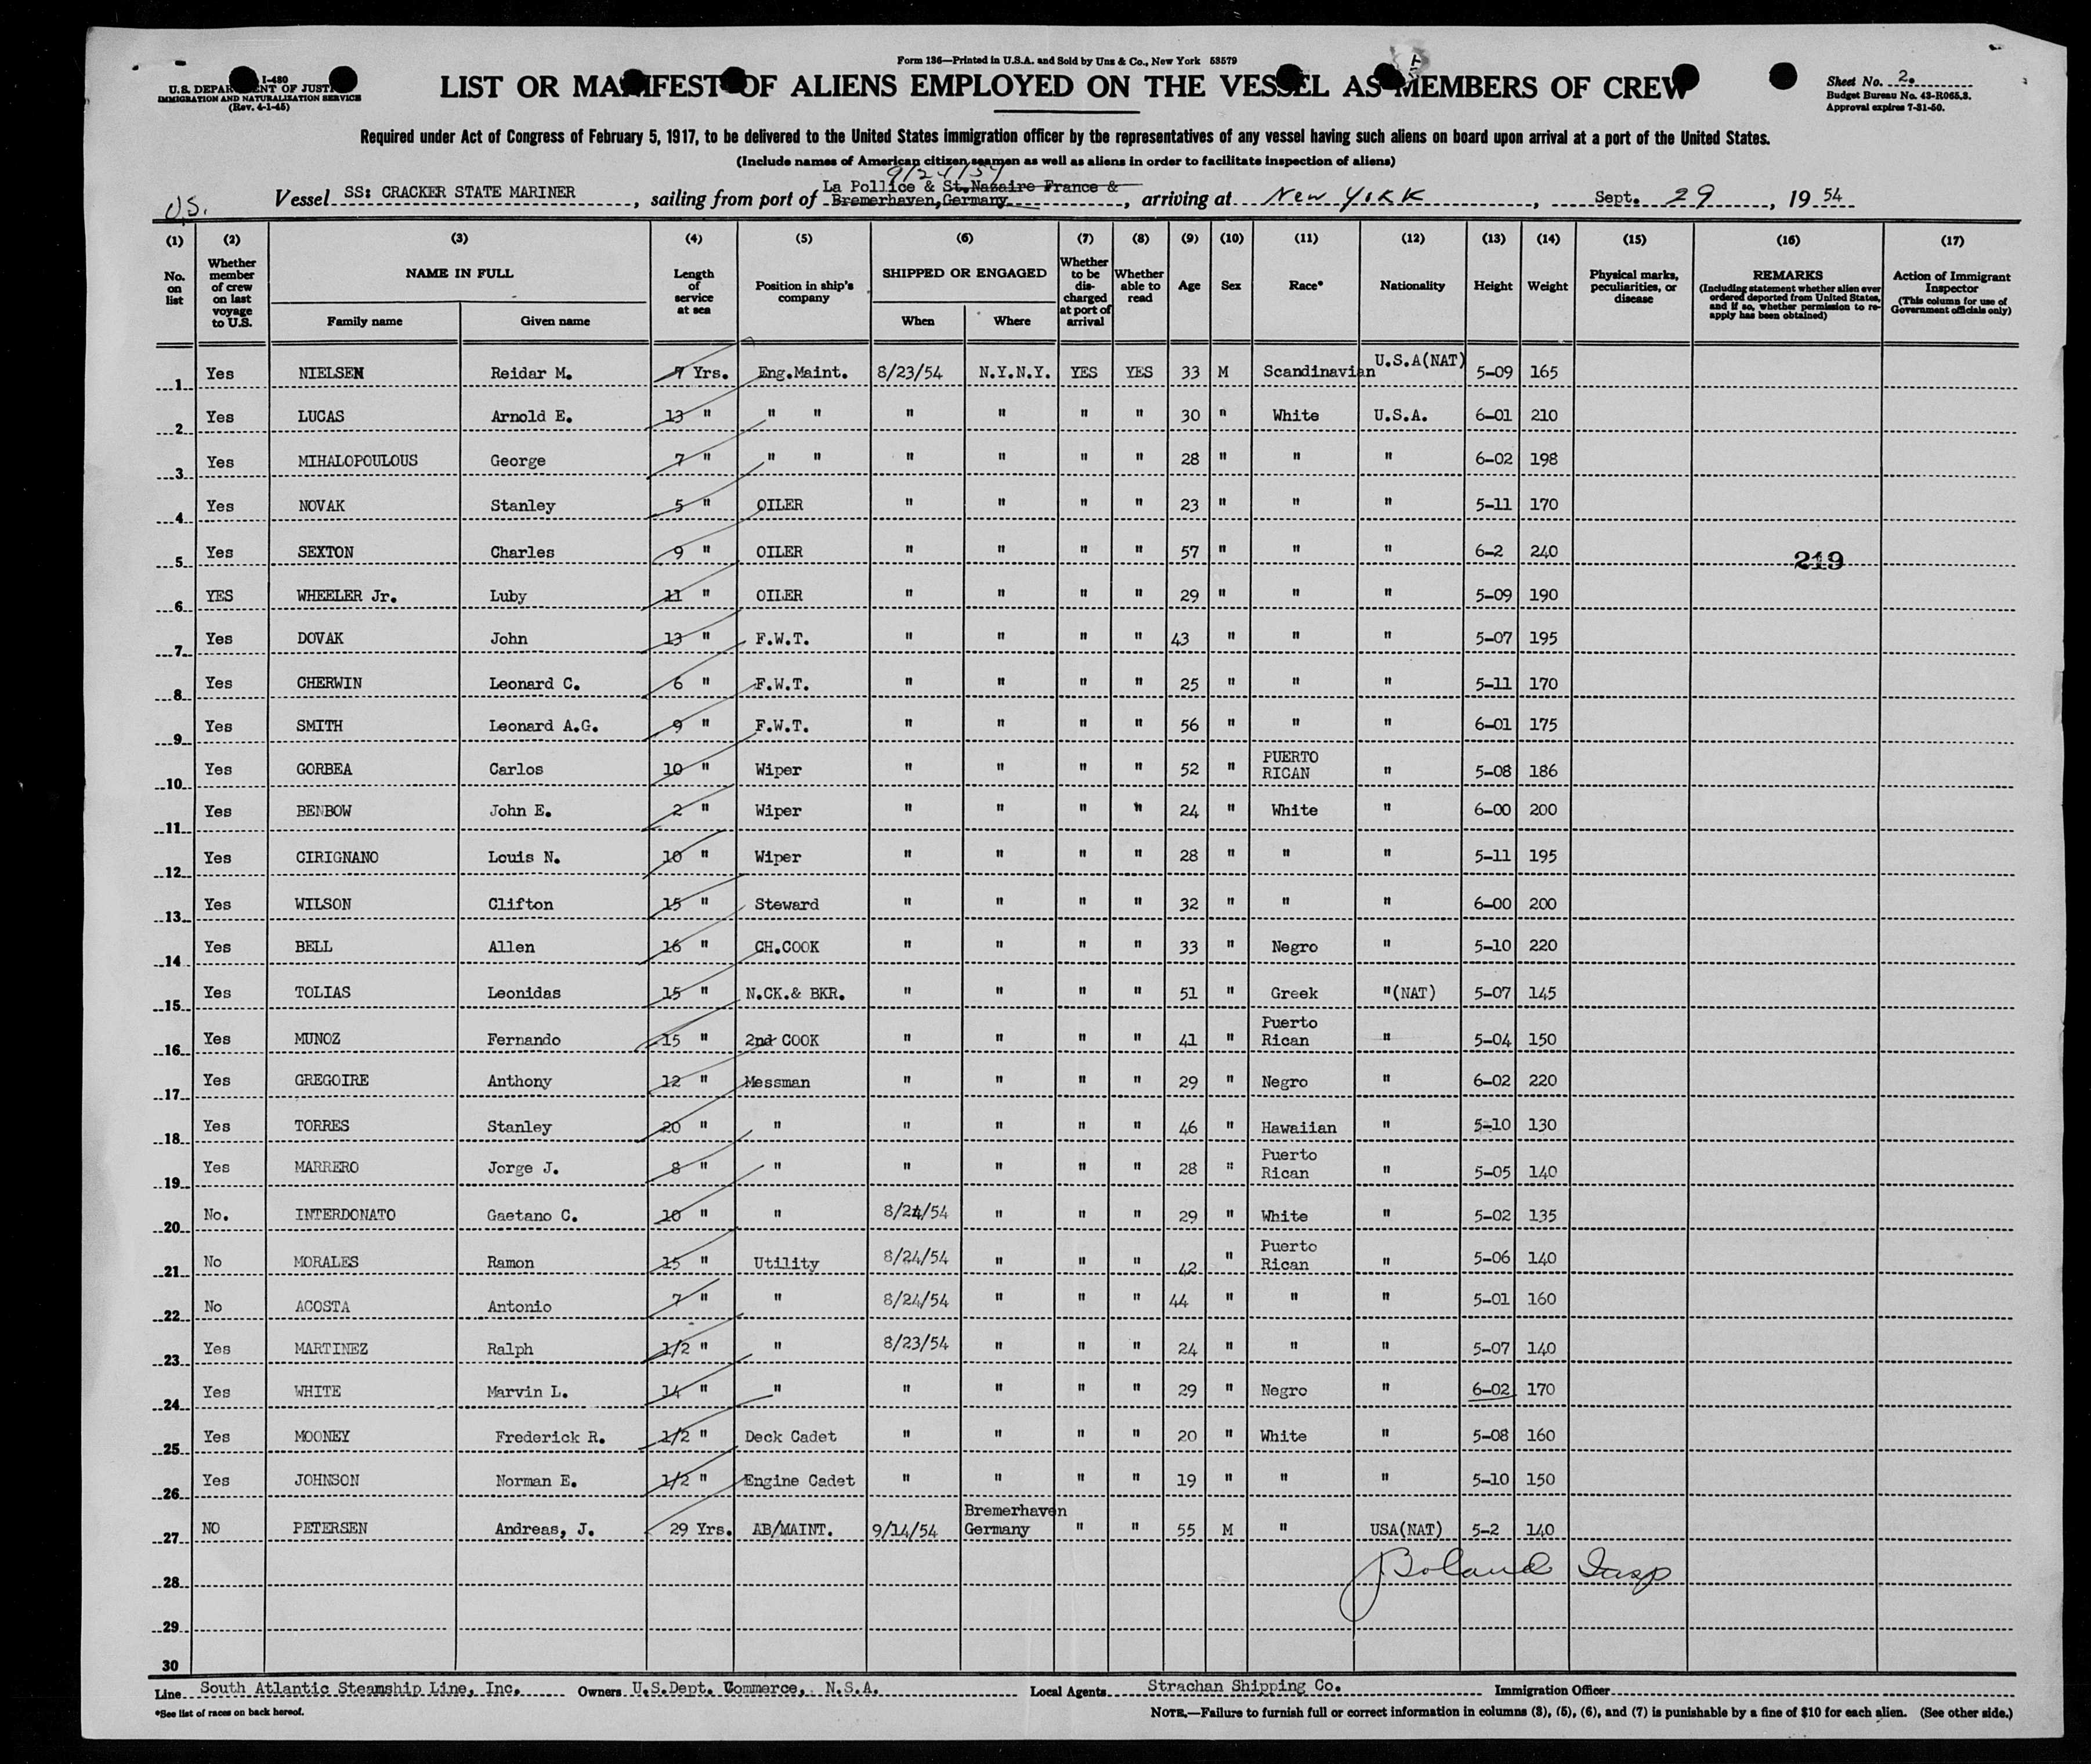 Form 136—Printed in U.S.A. and Sold by Unz & Co., New York 53579
I-480
U.S. DEPARTMENT OF JUSTICE
IMMIGRATION AND NATURALIZATION SERVICE
(Rev. 4-1-45)
LIST OR MANIFEST OF ALIENS EMPLOYED ON THE VESSEL AS MEMBERS OF CREW
Sheet No. 2.
Budget Bureau No. 43-R065.3.
Approval expires 7-31-50.
Required under Act of Congress of February 5, 1917, to be delivered to the United States immigration officer by the representatives of any vessel having such aliens on board upon arrival at a port of the United States.
(Include names of American citizen seamen as well as aliens in order to facilitate inspection of aliens)
9/21/54
La Pollice & St. Nazaire France &
U.S. Vessel SS: CRACKER STATE MARINER, sailing from port of Bremerhaven, Germany, arriving at New York, Sept. 29, 19 54
(1) (2) (3) (4) (5) (6) (7) (8) (9) (10) (11) (12) (13) (14) (15) (16) (17)
No. on list
Whether member of crew on last voyage to U.S.
NAME IN FULL
Family name Given name
Length of service at sea
Position in ship's company
SHIPPED OR ENGAGED
When Where
Whether to be discharged at port of arrival
Whether able to read
Age
Sex
Race*
Nationality
Height
Weight
Physical marks, peculiarities, or disease
REMARKS
(Including statement whether alien ever ordered deported from United States, and if so, whether permission to re-apply has been obtained)
Action of Immigrant Inspector
(This column for use of Government officials only)
1 Yes NIELSEN Reidar M. 7 Yrs. Eng.Maint. 8/23/54 N.Y.N.Y. YES YES 33 M Scandinavian U.S.A(NAT) 5-09 165
2 Yes LUCAS Arnold E. 13 " " " " " " " 30 " White U.S.A. 6-01 210
3 Yes MIHALOPOULOUS George 7 " " " " " " " 28 " " " 6-02 198
4 Yes NOVAK Stanley 5 " OILER " " " " 23 " " " 5-11 170
5 Yes SEXTON Charles 9 " OILER " " " " 57 " " " 6-2 240 219
6 YES WHEELER Jr. Luby 11 " OILER " " " " 29 " " " 5-09 190
7 Yes DOVAK John 13 " F.W.T. " " " " 43 " " " 5-07 195
8 Yes CHERWIN Leonard C. 6 " F.W.T. " " " " 25 " " " 5-11 170
9 Yes SMITH Leonard A.G. 9 " F.W.T. " " " " 56 " " " 6-01 175
10 Yes GORBEA Carlos 10 " Wiper " " " " 52 " PUERTO RICAN " 5-08 186
11 Yes BENBOW John E. 2 " Wiper " " " " 24 " White " 6-00 200
12 Yes CIRIGNANO Louis N. 10 " Wiper " " " " 28 " " " 5-11 195
13 Yes WILSON Clifton 15 " Steward " " " " 32 " " " 6-00 200
14 Yes BELL Allen 16 " CH.COOK " " " " 33 " Negro " 5-10 220
15 Yes TOLIAS Leonidas 15 " N.CK.& BKR. " " " " 51 " Greek "(NAT) 5-07 145
16 Yes MUNOZ Fernando 15 " 2nd COOK " " " " 41 " Puerto Rican " 5-04 150
17 Yes GREGOIRE Anthony 12 " Messman " " " " 29 " Negro " 6-02 220
18 Yes TORRES Stanley 20 " " " " " " 46 " Hawaiian " 5-10 130
19 Yes MARRERO Jorge J. 8 " " " " " " 28 " Puerto Rican " 5-05 140
20 No. INTERDONATO Gaetano C. 10 " " 8/24/54 " " " 29 " White " 5-02 135
21 No MORALES Ramon 15 " Utility 8/24/54 " " " 42 " Puerto Rican " 5-06 140
22 No ACOSTA Antonio 7 " " 8/24/54 " " " 44 " " " 5-01 160
23 Yes MARTINEZ Ralph 1/2 " " 8/23/54 " " " 24 " " " 5-07 140
24 Yes WHITE Marvin L. 14 " " " " " " 29 " Negro " 6-02 170
25 Yes MOONEY Frederick R. 1/2 " Deck Cadet " " " " 20 " White " 5-08 160
26 Yes JOHNSON Norman E. 1/2 " Engine Cadet " " " " 19 " " " 5-10 150
27 NO PETERSEN Andreas, J. 29 Yrs. AB/MAINT. 9/14/54 Bremerhaven Germany " " 55 M " USA(NAT) 5-2 140
28 JBoland Insp
29
30
Line South Atlantic Steamship Line, Inc. Owners U.S.Dept. Commerce, N.S.A. Local Agents Strachan Shipping Co. Immigration Officer
*See list of races on back hereof.
NOTE.—Failure to furnish full or correct information in columns (3), (5), (6), and (7) is punishable by a fine of $10 for each alien. (See other side.)